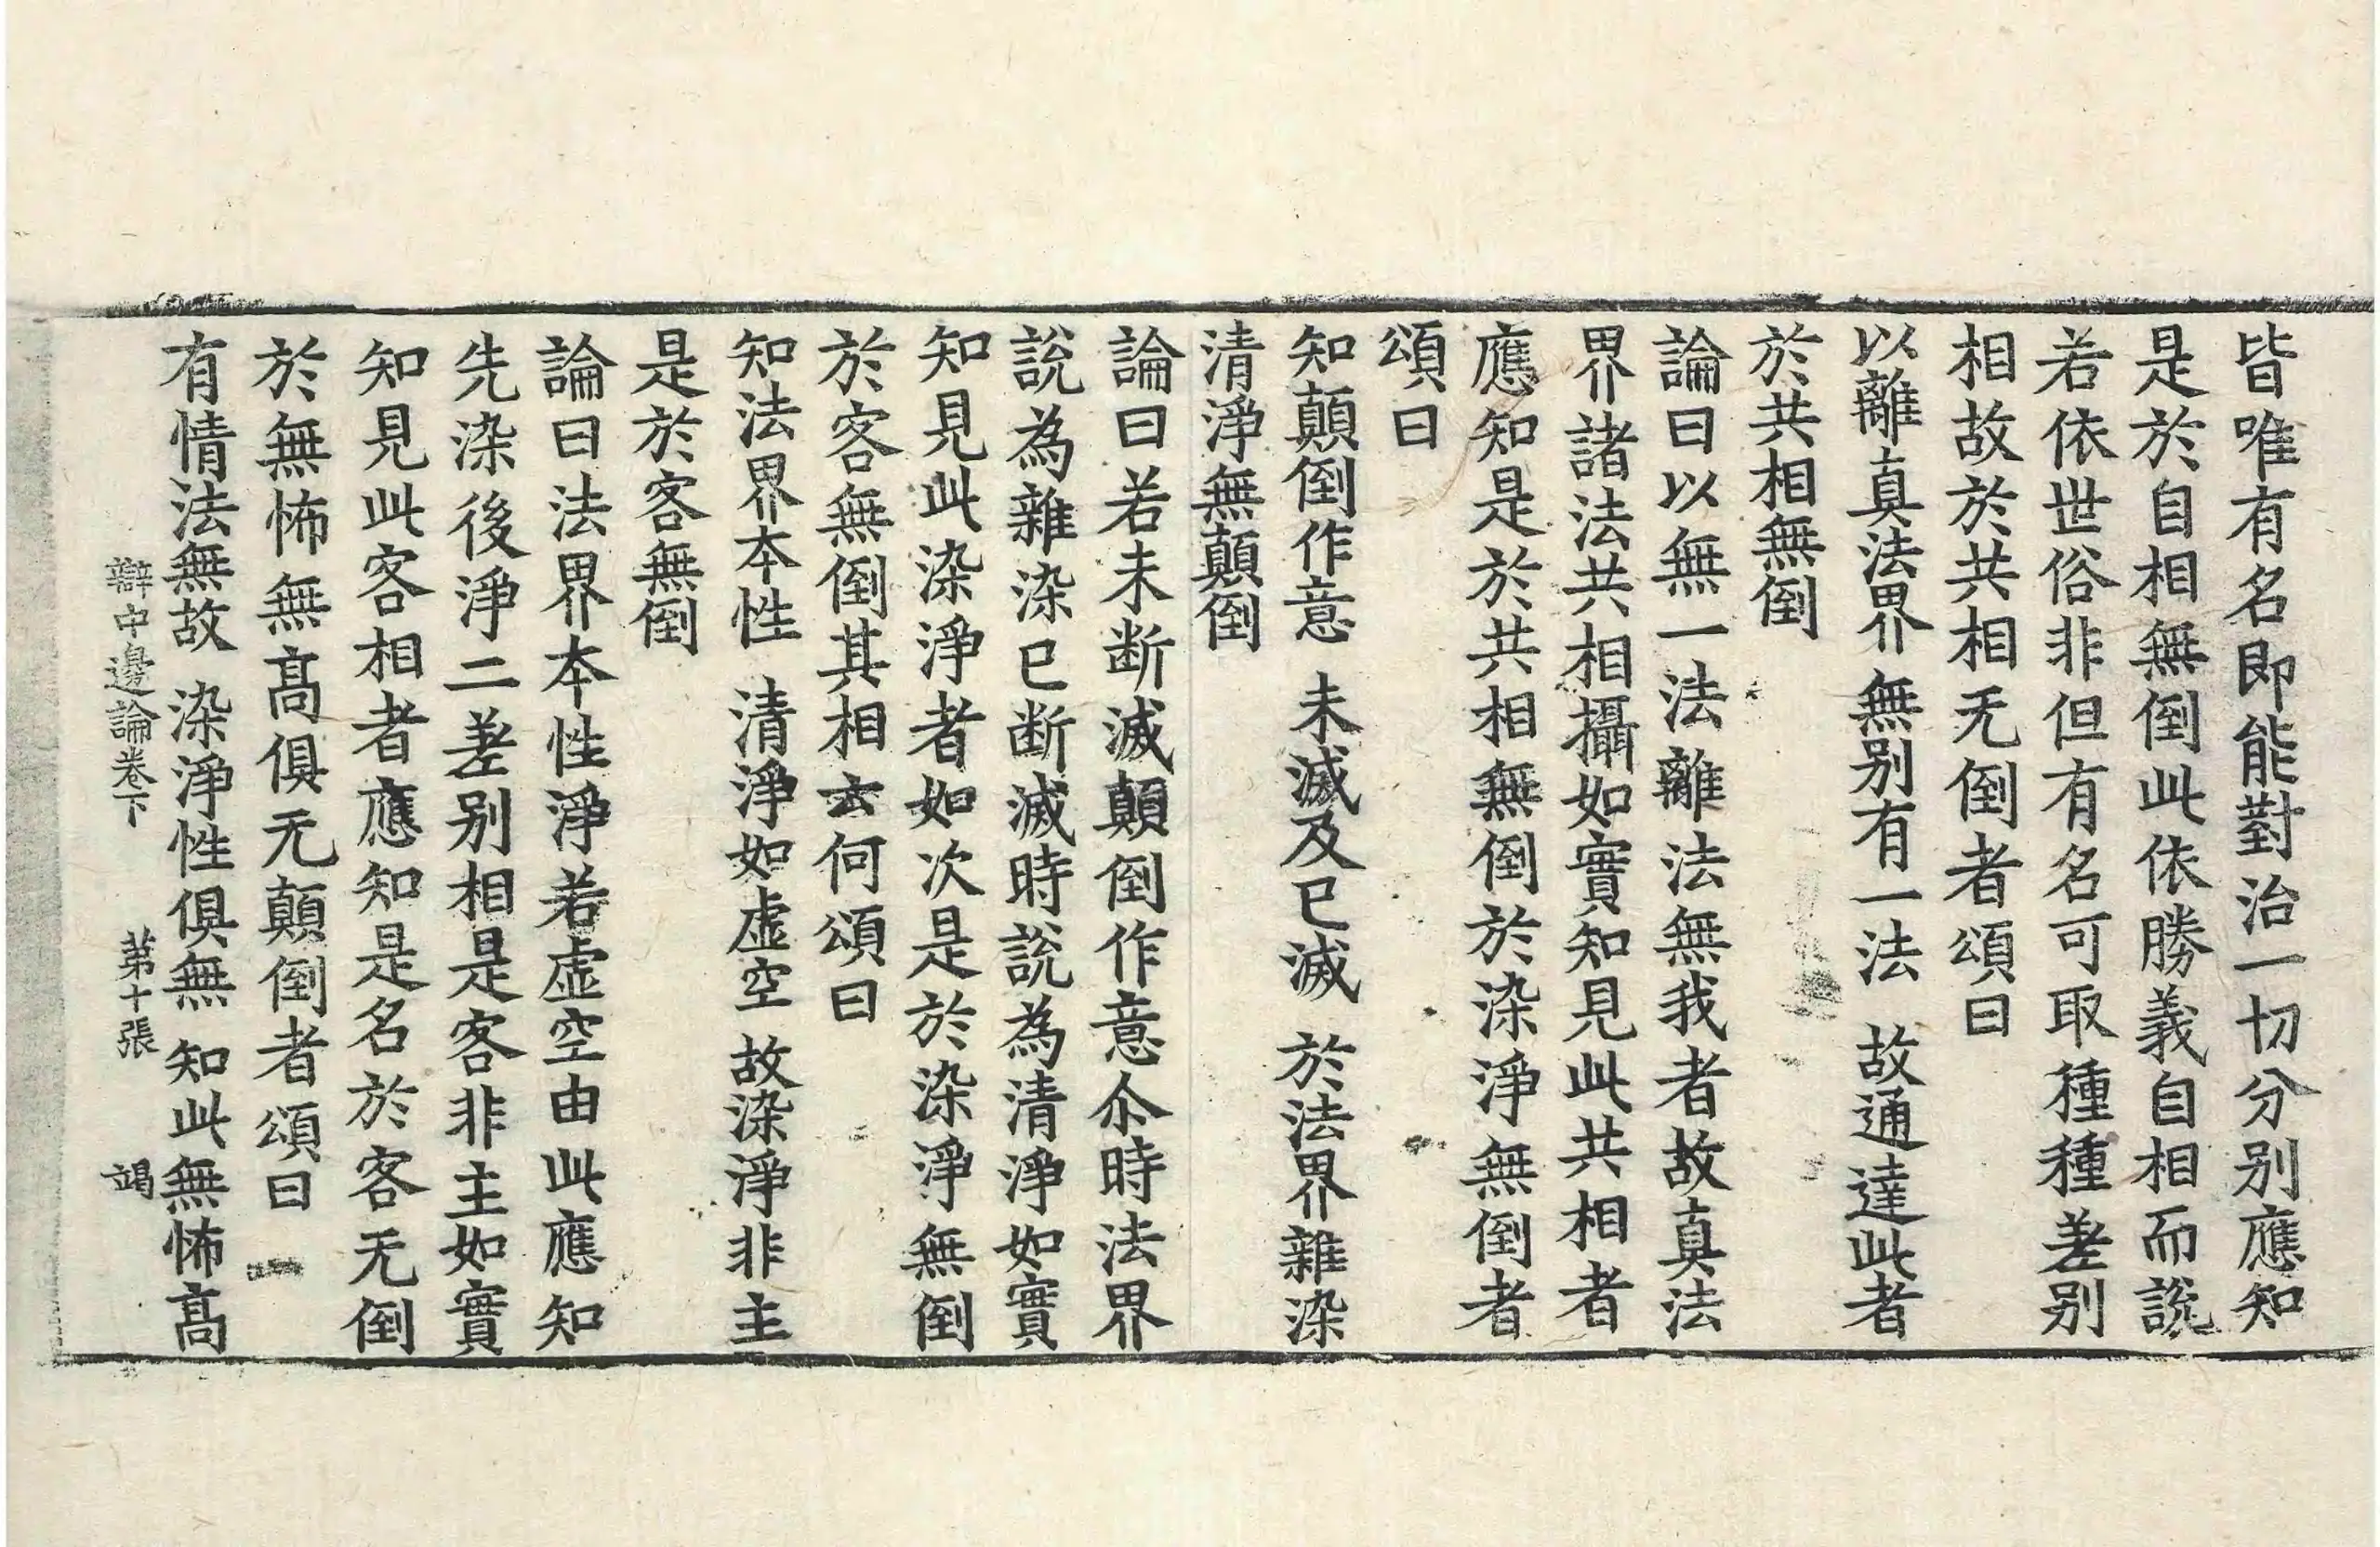 皆唯有名即能對治一切分别應知
是於自相無倒此依勝義自相而說
若依世俗非但有名可取種種差别
相故於共相无倒者頌曰
以離真法界 無别有一法 故通達此者
於共相無倒
論曰以無一法離法無我者故真法
界諸法共相攝如實知見此共相者
應知是於共相無倒於染淨無倒者
頌曰
知顛倒作意 未滅及已滅 於法界雜染
清淨無顛倒
論曰若未断滅顛倒作意尒時法界
說為雜染已断滅時說為清淨如實
知見此染淨者如次是於染淨無倒
於客無倒其相云何頌曰
知法界本性 清淨如虛空 故染淨非主
是於客無倒
論曰法界本性淨若虛空由此應知
先染後淨二差别相是客非主如實
知見此客相者應知是名於客无倒
於無怖無髙俱无顛倒者頌曰
有情法無故 染淨性俱無 知此無怖髙
辯中邊論卷下 苐十張 竭